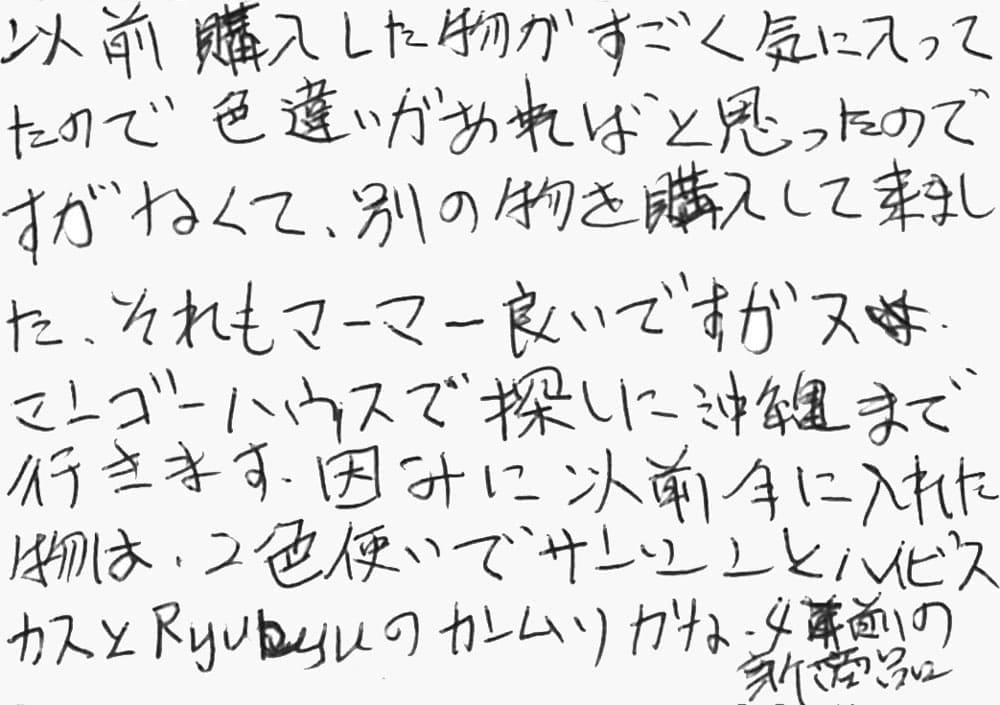 以前購入した物がすごく気に入って
たので色違いがあればと思ったので
すがなくて、別の物を購入して来まし
た、それもマーマー良いですがス
マンゴーハウスで探しに沖縄まで
行きます、因みに以前手に入れた
物は、2色使いでサンゴととハイビス
カスとRyukyuのカームリかな、4年前の
新商品